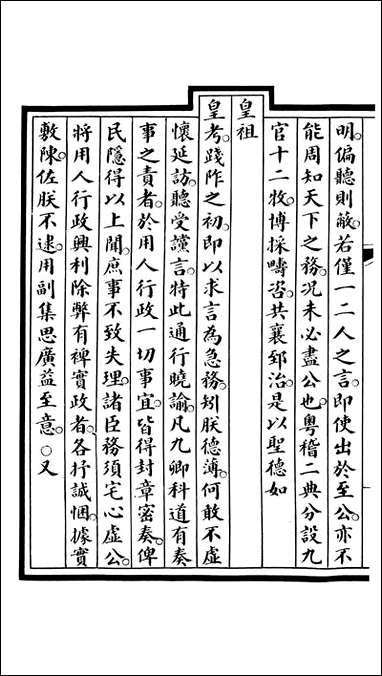 明。偏聽則蔽。若僅一二人之言。即使出於至公。亦不
能周知天下之務。况未必盡公也。粵稽二典。分設九
官十二牧。博採疇咨。共襄郅治。是以聖德如
皇祖
皇考。踐阼之初。即以求言為急務。矧朕德薄。何敢不虛
懷延訪。聽受讜言。特此通行曉諭。凡九卿科道有奏
事之責者。於用人行政一切事宜。皆得封章密奏。俾
民隱得以上聞。庶事不致失理。諸臣務須宅心虛公。
將用人行政興利除弊有裨實政者。各抒誠悃。據實
敷陳。佐朕不逮。用副集思廣益至意。○又